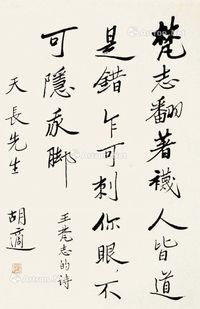 梵志翻著襪人皆道
是錯乍可刺你眼，不
可隱我脚
王梵志的詩
天長先生
胡適